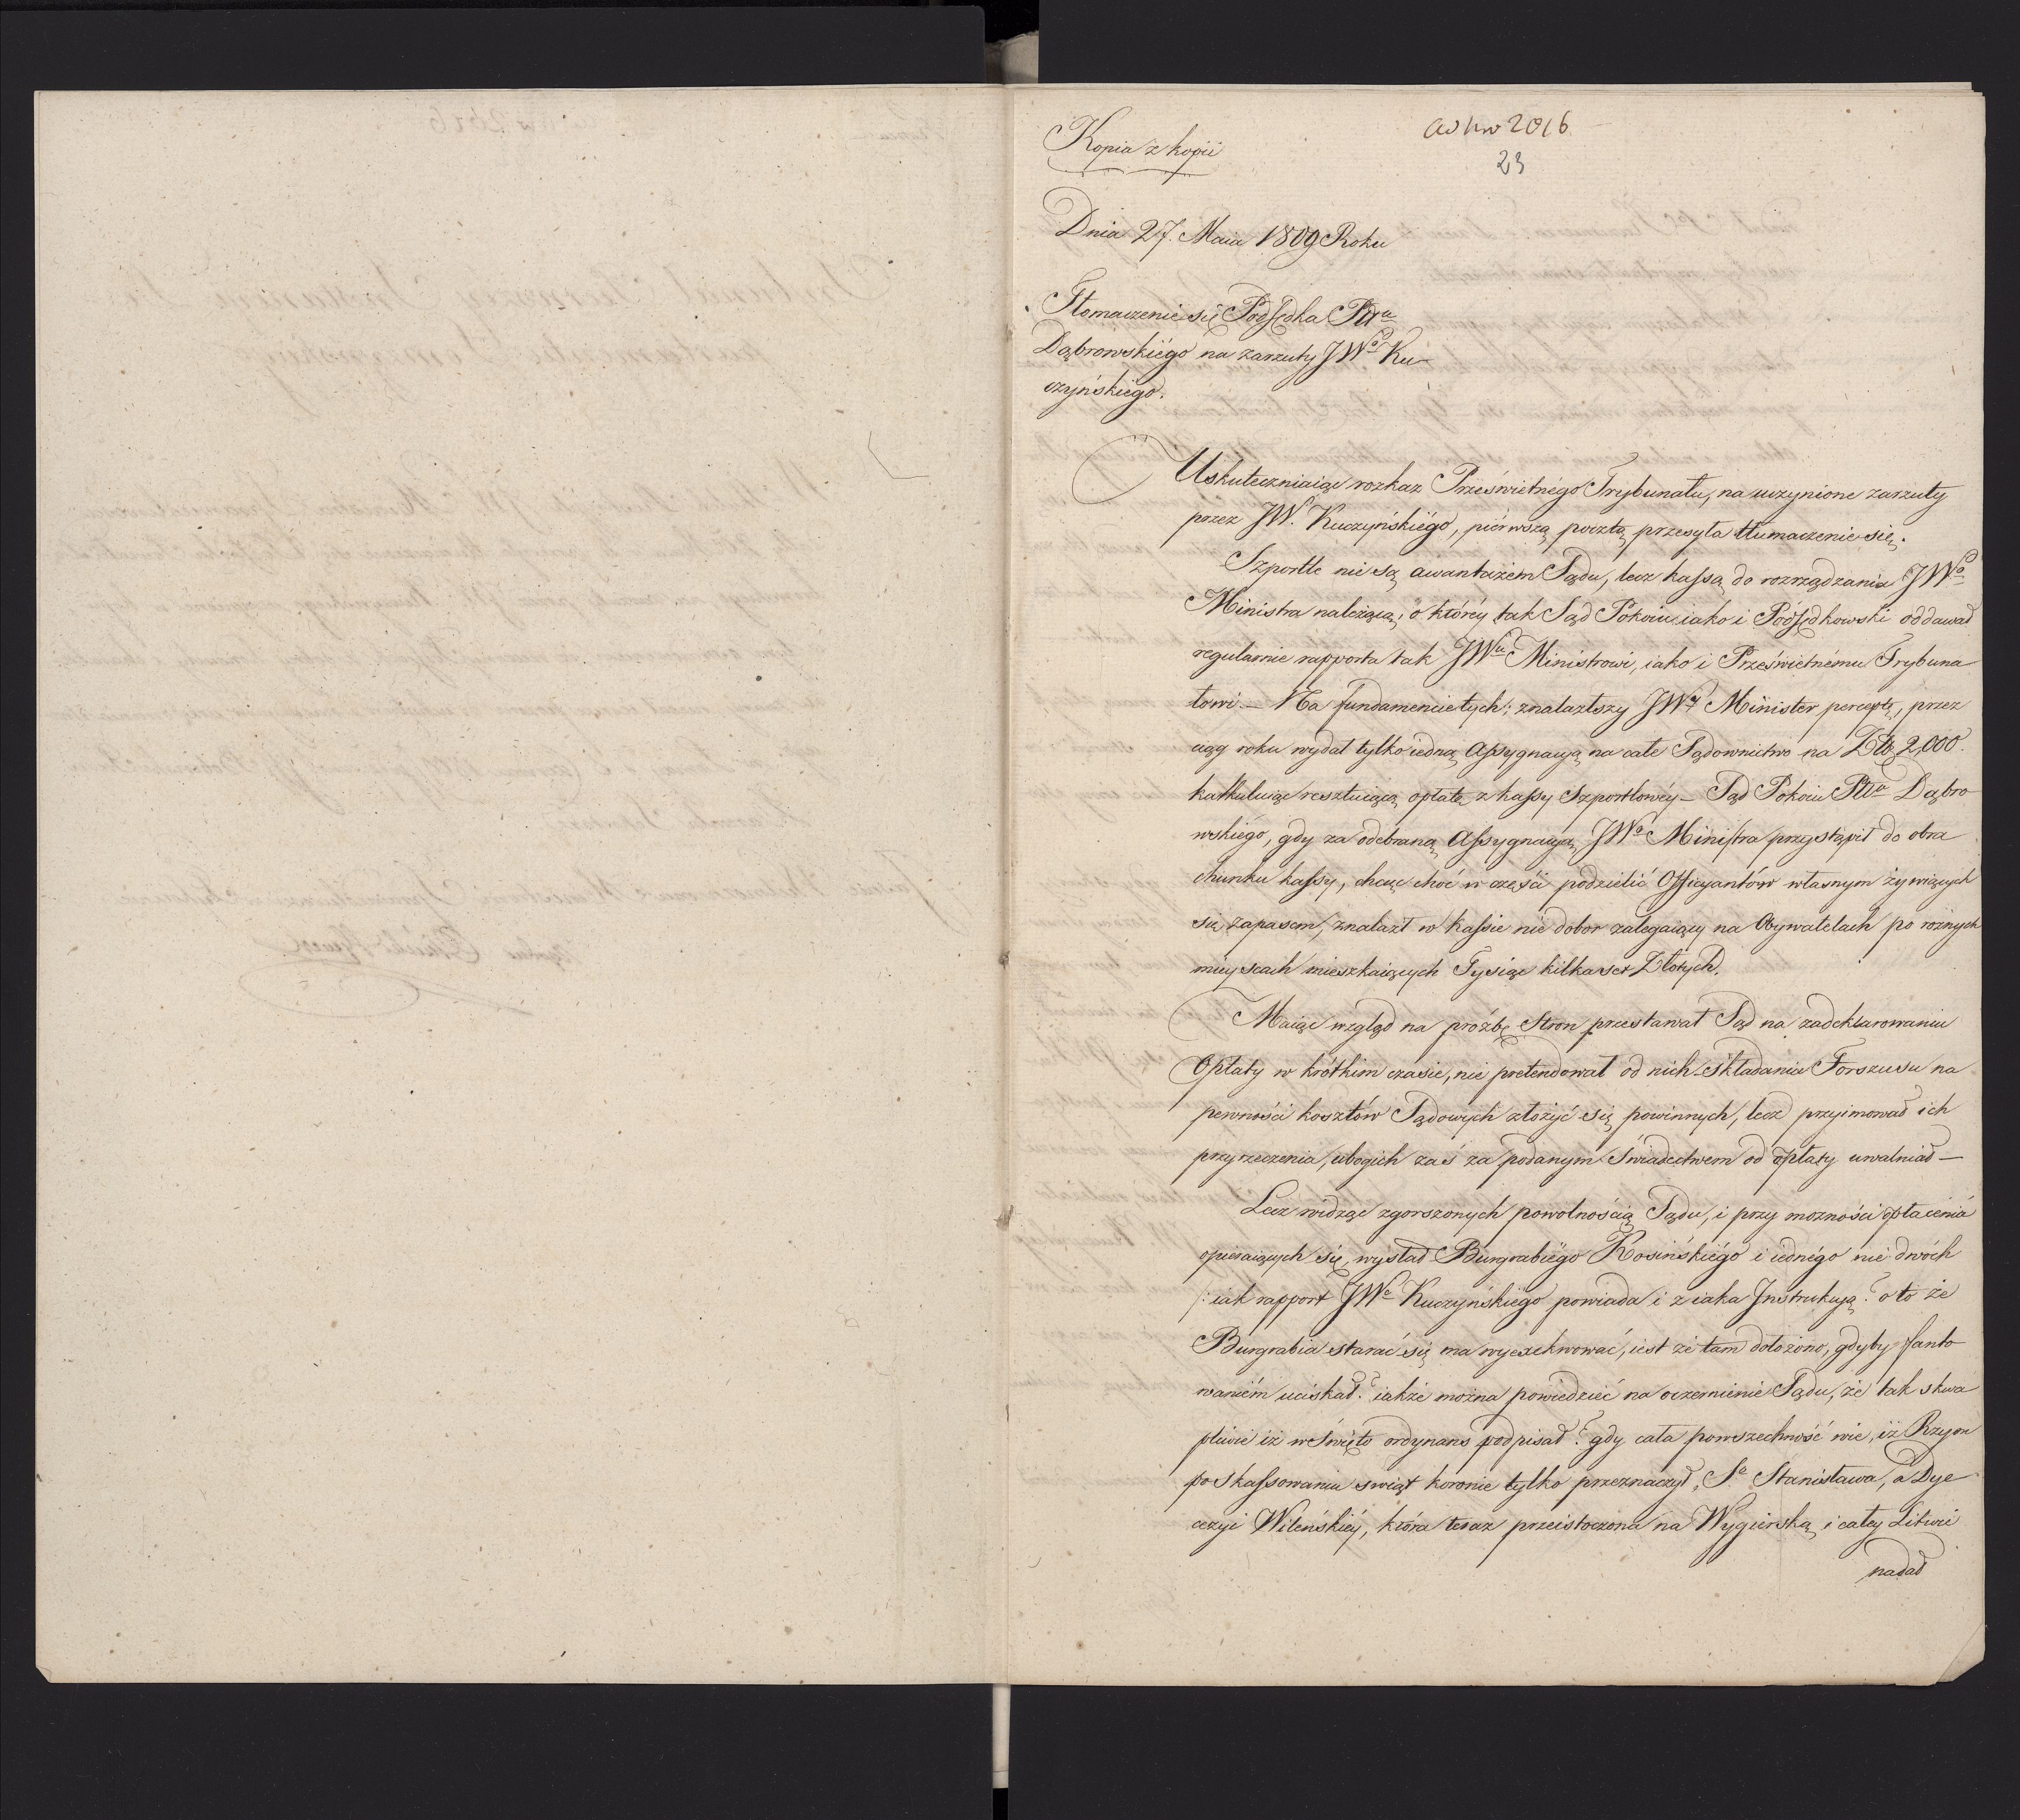 Kopia z kopii
2016
23
Dnia 27. Maia 1809 Roku
Tłomaczenie się Podsędka Pttu
Dąbrowskiégo na zarzuty JWo Ku-
czyńskiégo.
Uskuteczniaiąc rozkaz Prześwietnégo Trybunału, na uczynione zarzuty
przez JW. Kuczyńskiégo, piérwszą pocztą przesyła tłumaczenie się.
Szportle nie są awantażem Sądu, lecz kassą do rozrządzania JWo
Ministra należącą; o któréy tak Sąd Pokoiu iako i Podsędkowski oddawał
regularnie rapporta tak JWu Ministrowi, iako i Prześwietnému Trybuna
łowi. — Na fundamencie tych; znalazłszy JWy Minister perceptę, przez
ciąg roku wydał tylko iedną Assygnacyą na całe Sądownictwo na Złt. 2,000.
kalkuluiąc resztuiącą opłatę z kassy Szportlowéy — Sąd Pokoiu Pttu Dąbro
wskiégo, gdy za odebraną Assygnacyą JWo Ministra przystąpił do obra
chunku kassy, chcąc choć w części podzielić Officyantów własnym żywiących
się zapasem, znalazł w kassie nie dobor zalegaiący na Obywatelach po roznych
mieyscach mieszkaiących Tysiąc kilkaset Złotych.
Maiąc wzgląd na proźbę Stron przestawał Sąd na zadeklarowaniu
Opłaty w krótkim czasie, nie pretendował od nich składania Forszusu na
pewności kosztów Sądowych złożyć się powinnych, lecz przyimował ich
przyrzeczenia, ubogich zaś za podanym Świadectwem od opłaty uwalniał —
Lecz widząc zgorszonych powolnością Sądu, i przy możności opłacenia
opieraiących się, wysłał Burgrabiégo Kosińskiégo i iednégo nie dwóch
/: iak rapport JWo Kuczyńskiego powiada i z iaka Instrukcyą? oto że
Burgrabia starać się ma wyexekwować, iest że tam dołożono, gdyby fanto
waniém uciskał? iakże można powiedzieć na oczernienie Sądu, że tak skwa
pliwie iż w Święto ordynans podpisał? gdy cała powszechność wie, iż Rzym
po skassowaniu swiąt koronie tylko przeznaczył, So Stanisława, a Dye
cezyi Wileńskiéy, która teraz przeistoczona na Wygierską i całey Litwie
nadał